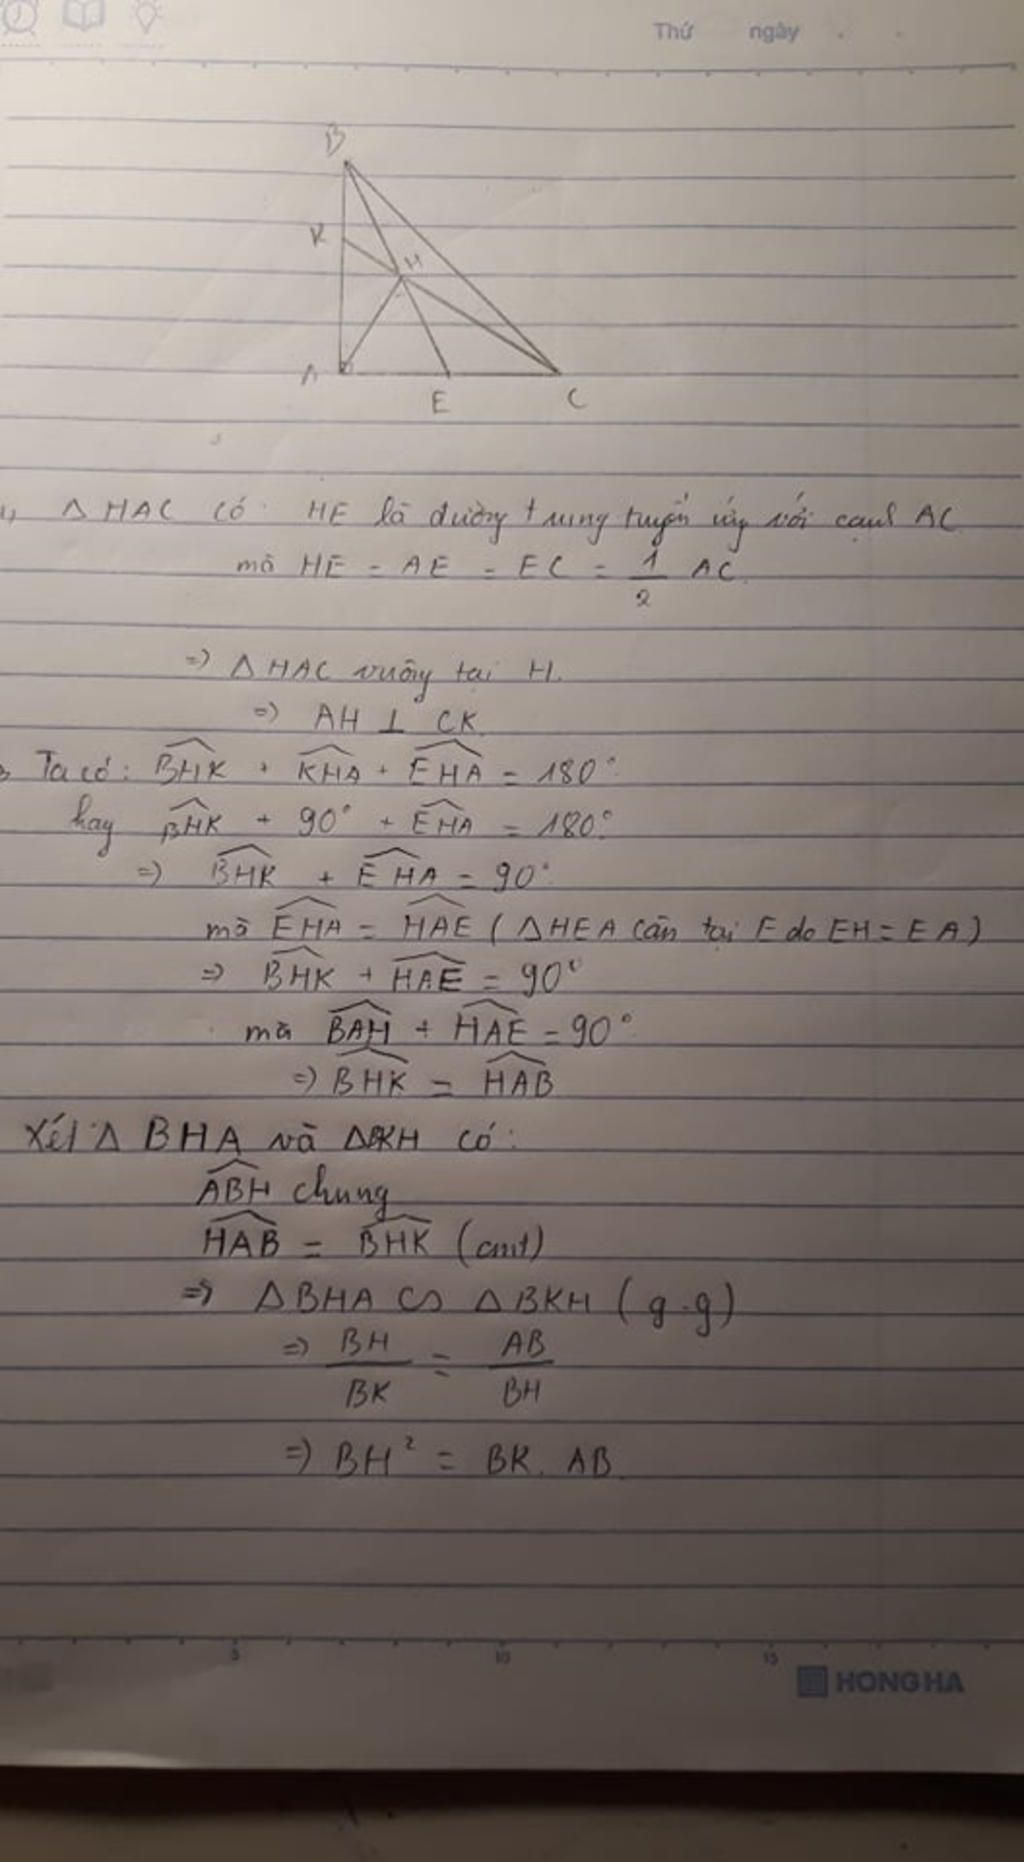 Thứ ngày
B
K
H
A
E
C
△ HAC có HE là đường trung tuyến ứng với cạnh AC
mà HE = AE = EC = 1/2 AC.
=> △ HAC vuông tại H.
=> AH ⊥ CK.
Ta có: \widehat{BHK} + \widehat{KHA} + \widehat{EHA} = 180°
hay \widehat{BHK} + 90° + \widehat{EHA} = 180°
=> \widehat{BHK} + \widehat{EHA} = 90°
mà \widehat{EHA} = \widehat{HAE} ( △HEA cân tại E do EH = EA )
=> \widehat{BHK} + \widehat{HAE} = 90°
mà \widehat{BAH} + \widehat{HAE} = 90°
=> \widehat{BHK} = \widehat{HAB}
Xét △ BHA và △BKH có:
\widehat{ABH} chung
\widehat{HAB} = \widehat{BHK} (cmt)
=> △BHA ∽ △BKH ( g.g )
=> BH/BK = AB/BH
=> BH² = BK. AB.
5 10 15
HONG HA